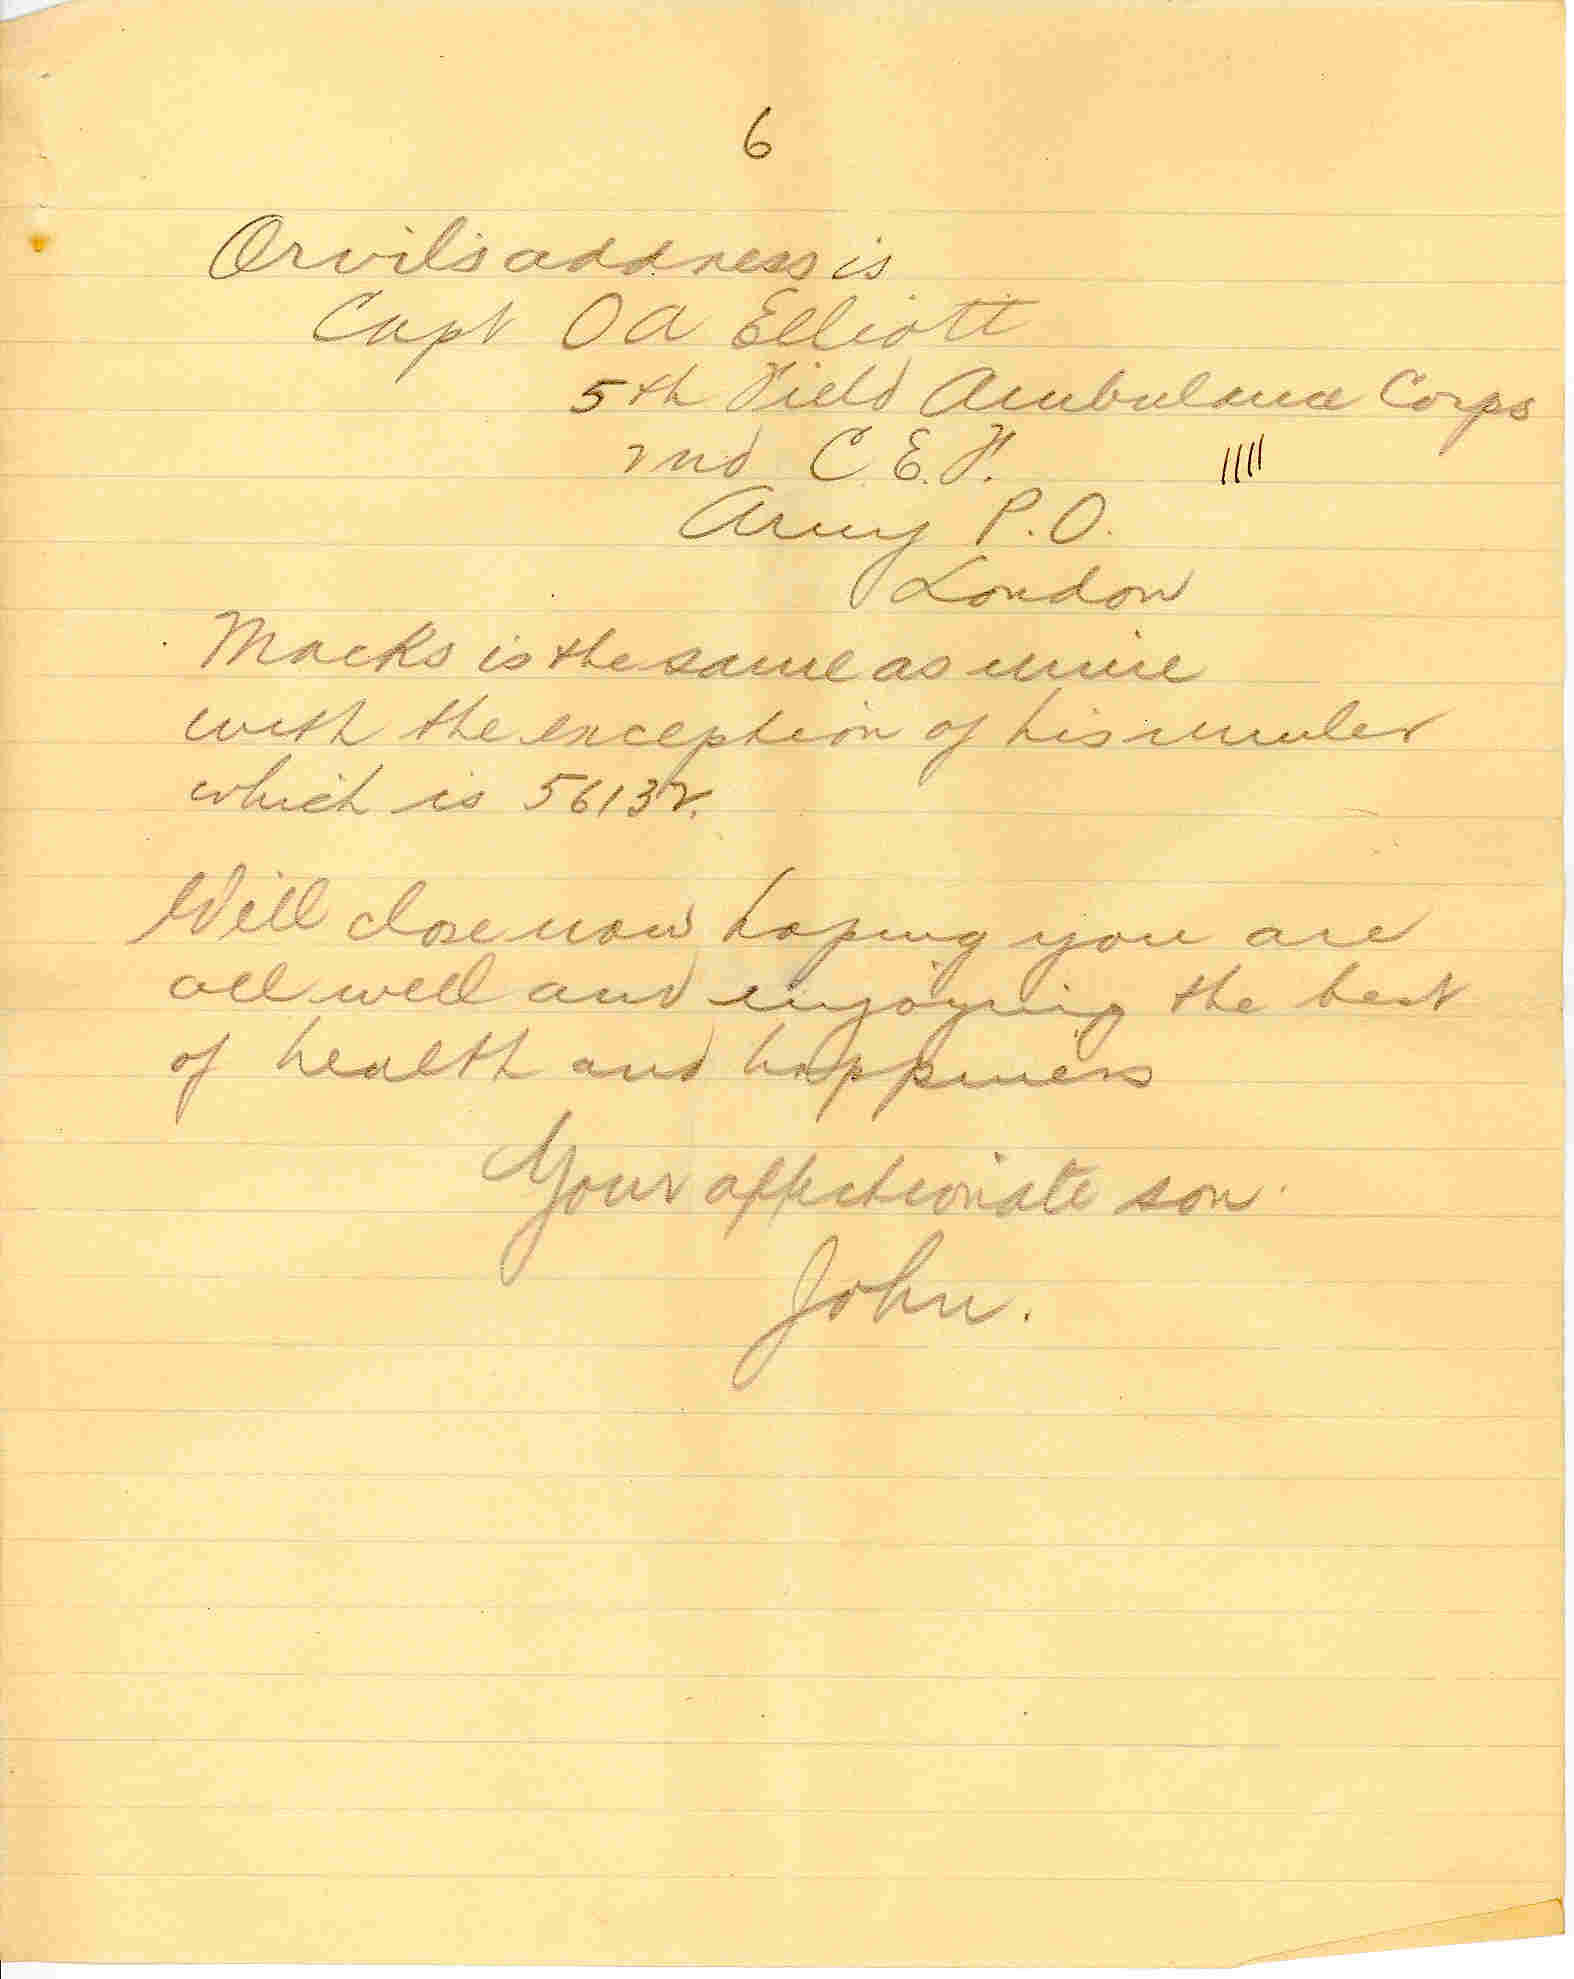 6
Orvil's address is
Capt O A Elliott
5th Field Ambulance Corps
2nd C.E.F.
Army P.O.
London
Macks is the same as mine
with the exception of his number
which is 56132.
Will close now hoping you are
all well and enjoying the best
of health and happiness
Your affectionate son
John.